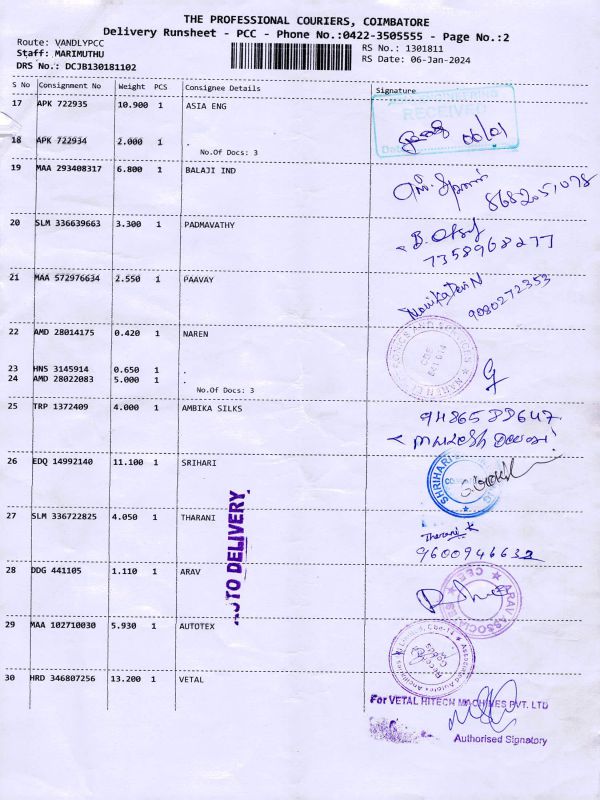 THE PROFESSIONAL COURIERS, COIMBATORE
Delivery Runsheet - PCC - Phone No.:0422-3505555 - Page No.:2
Route: VANDLYPCC
RS No.: 1301811
Staff: MARIMUTHU
RS Date: 06-Jan-2024
DRS No.: DCJB130181102
S No Consignment No Weight PCS Consignee Details Signature
17 APK 722935 10.900 1 ASIA ENG
RECEIVED
18 APK 722934 2.000 1 .
06/01
No.Of Docs: 3
Date
19 MAA 293408317 6.800 1 BALAJI IND
8682051078
20 SLM 336639663 3.300 1 PADMAVATHY
7358968277
21 MAA 572976634 2.550 1 PAAVAY
9080272353
22 AMD 28014175 0.420 1 NAREN
23 HNS 3145914 0.650 1 .
24 AMD 28022083 5.000 1 .
No.Of Docs: 3
25 TRP 1372409 4.000 1 AMBIKA SILKS
26 EDQ 14992140 11.100 1 SRIHARI
SHRIHARI
27 SLM 336722825 4.050 1 THARANI
AUTO DELIVERY
Tharani
9600946632
28 DDG 441105 1.110 1 ARAV
ARAV ASSOCIATES
29 MAA 102710030 5.930 1 AUTOTEX
30 HRD 346807256 13.200 1 VETAL
For VETAL HITECH MACHINES PVT. LTD
Authorised Signatory